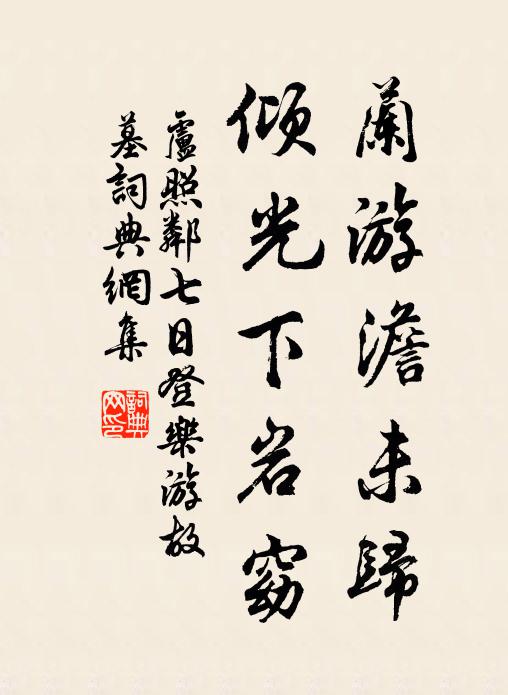 蘭游澹未歸
傾光下岩窈
盧照鄰七日登樂游故
墓詞典網集
詞典
网印